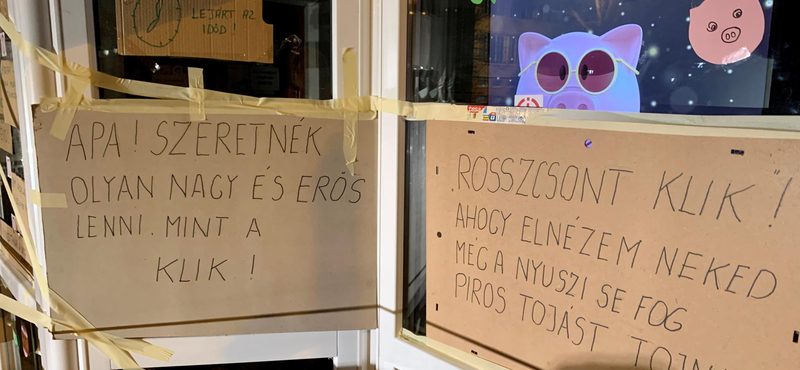 LEJÁRT AZ
IDŐD!
APA! SZERETNÉK
OLYAN NAGY ÉS ERŐS
LENNI. MINT A
KLIK!
„ROSSZCSONT KLIK"!
AHOGY ELNÉZEM NEKED
MÉG A NYUSZI SE FOG
PIROS TOJÁST TOJN